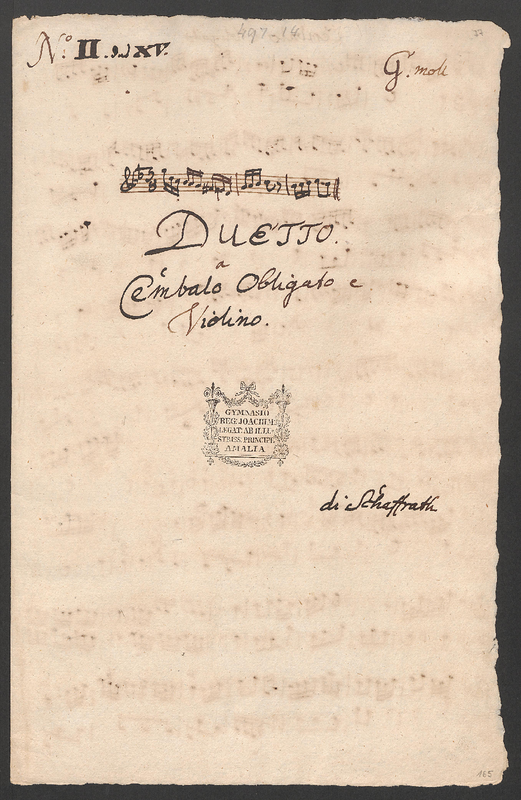 497-14
No: II. XV.
G. moll
DUETTO.
a
Cembalo Obligato e
Violino.
GYMNASIO
REG. JOACHIM.
LEGAT. AB ILLU-
STRISS. PRINCIPE
AMALIA
di Schaffrath
165